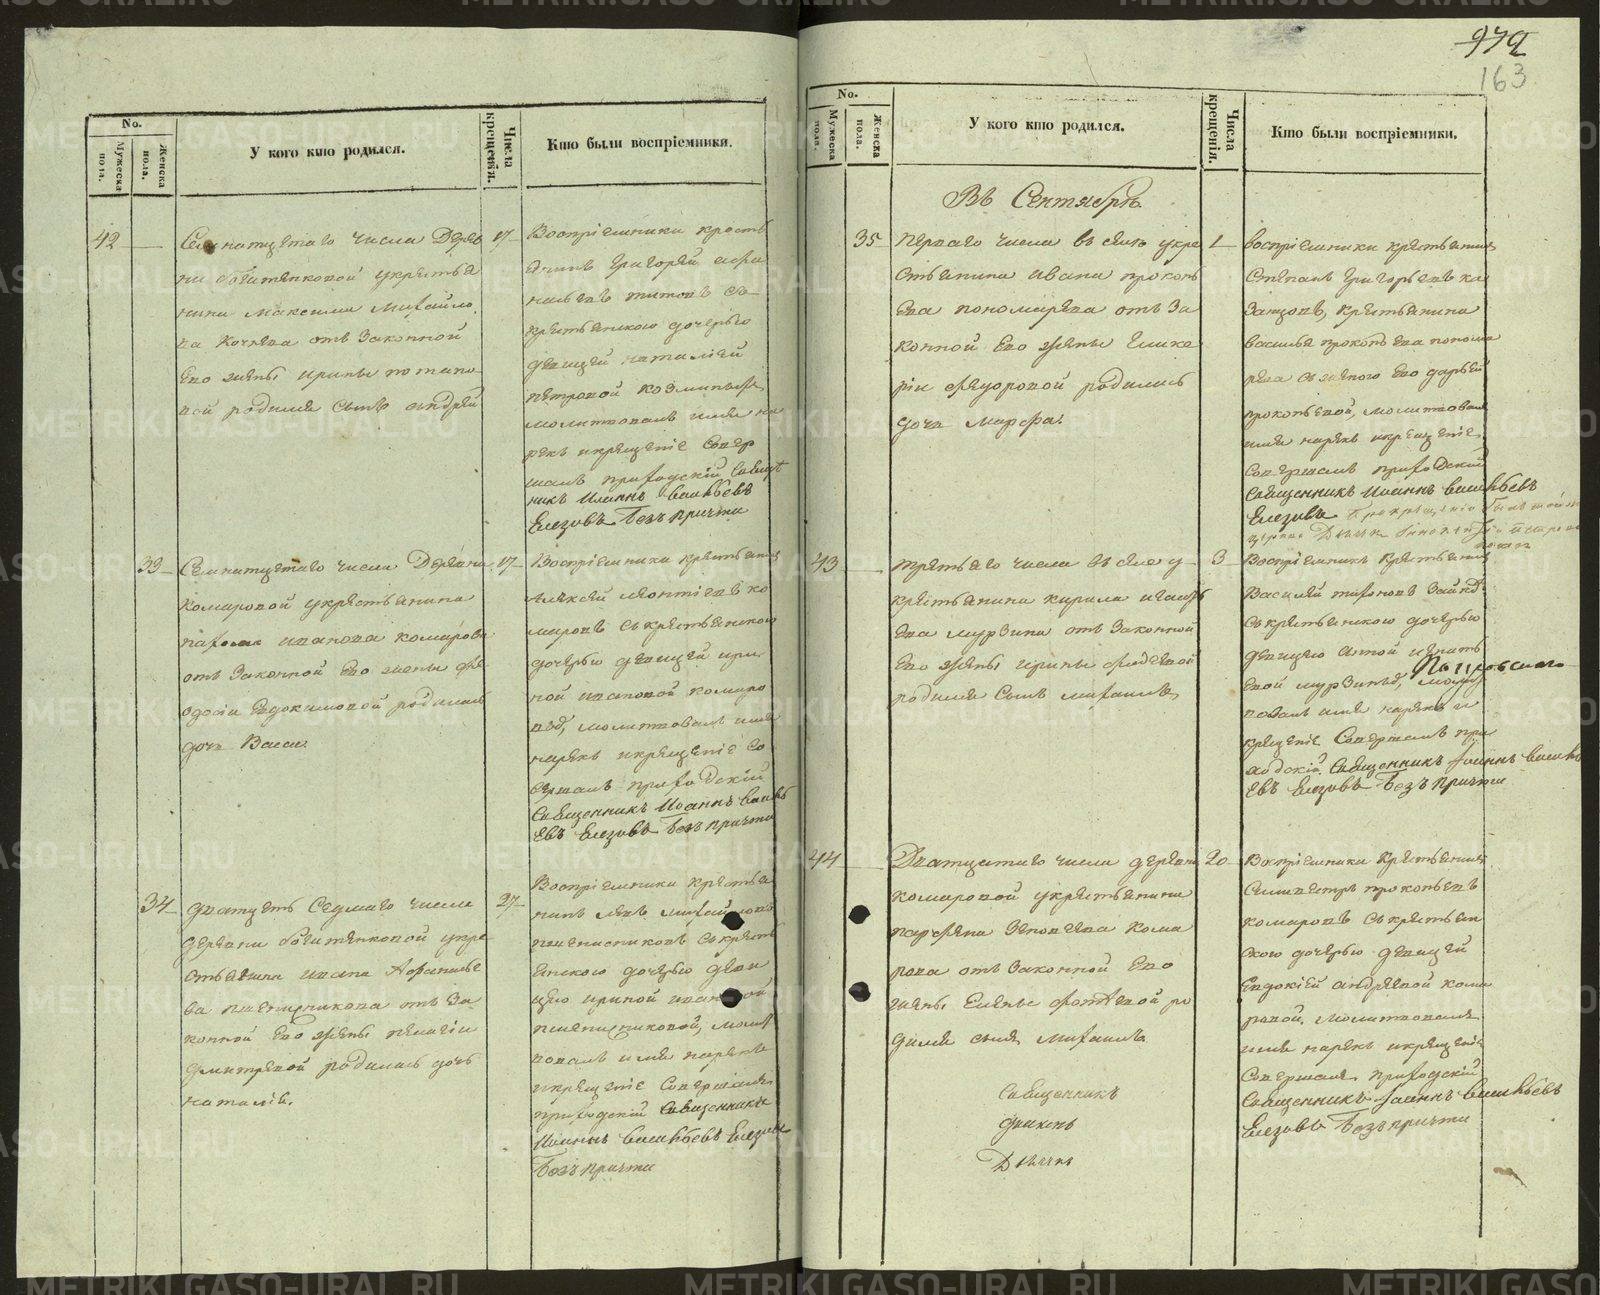 No.
Мужеска пола.
Женска пола.
У кого кто родился.
Числа крещенія.
Кто были воспріемники.
42
Семнатцетаго числа Дерев
ни укрестья
нина Максима Михайло
ва Кочнева отъ законной
его жены ирины потапо
вой родился сынъ андрей
17
Воспріемники крость
янинъ Григорей афа
насьевъ титовъ съ
крестьянскою дочерью
девицей наталіей
петровой
молитвовалъ имя на
рекъ икрещеніе совер
шалъ приходскій Священ
никъ Иоаннъ Васильевъ
Елезовъ Безъ причта
33
Семнатцетаго числа Деревни
Комаровой укрестьянина
иванова комарова
отъ законной его жены фе
одосіи Евдокимовой родилась
дочь Васса
17
Воспріемники крестьянинъ
Алексей леонтіевъ ко
маровъ съ крестьянскою
дочерью девицей ири
ной ивановой комаро
вой, молитвовалъ имя
нарекъ икрещеніе со
вершалъ приходскій
Священникъ Иоаннъ Василь
евъ Елезовъ Безъ причта
34
дватцеть Седмаго числа
деревни укре
стьянина ивана Афанасье
ва пшенишникова отъ за
конной его жены пелагіи
дмитревой родилась дочь
наталія.
27
Воспріемники крестья
нинъ левъ михайловъ
съ кресть
янскою дочерью деви
цею ириной ивановой
пшенишниковой, молит
вовалъ имя нарекъ
икрещеніе Совершалъ
приходскій Священникъ
Иоаннъ Васильевъ Елезовъ
Безъ причта
979
163
No.
Мужеска пола.
Женска пола.
У кого кто родился.
Числа крещенія.
Кто были воспріемники.
Въ Сентябре
35
перваго числа въ селе укре
стьянина ивана прокопь
ева пономарева отъ за
конной его жены Глике
ріи федоровой родилась
дочь марфа.
1
воспріемники крестьянинъ
Степанъ Григорьевъ ка
занцовъ, крестьянина
василья прокопьева понома
рева съ женою его дарьей
прокопьевой, молитвовалъ
имя нарекъ икрещеніе
Совершалъ приходскій
Священникъ Иоаннъ Васильевъ
Елезовъ
43
третьего числа въ селе у
крестьянина кирила игнать
ева мурзина отъ законной
его жены ирины
родился сынъ михаилъ
3
Воспріемникъ Крестьянинъ
Василей
съ крестьянскою дочерью
девицею анной игнать
евой мурзиной, молит
вовалъ имя нарекъ и
крещеніе Совершалъ при
ходскій Священникъ Іоаннъ Василь
евъ Елезовъ Безъ причта
44
Дватцетаго числа деревни
комаровой укрестьянина
парфена зеновьева кома
рова отъ законной его
жены Елены ро
дился сынъ михаилъ
20
Воспріемники Крестьянинъ
Силивестръ прокопьевъ
комаровъ съ крестьян
скою дочерью девицей
Евдокіей андревой кома
ровой, молитвовалъ
имя нарекъ икрещеніе
Совершалъ приходскій
Священникъ Іоаннъ Васильевъ
Елезовъ Безъ причта
Священникъ
диаконъ
Дьячкъ